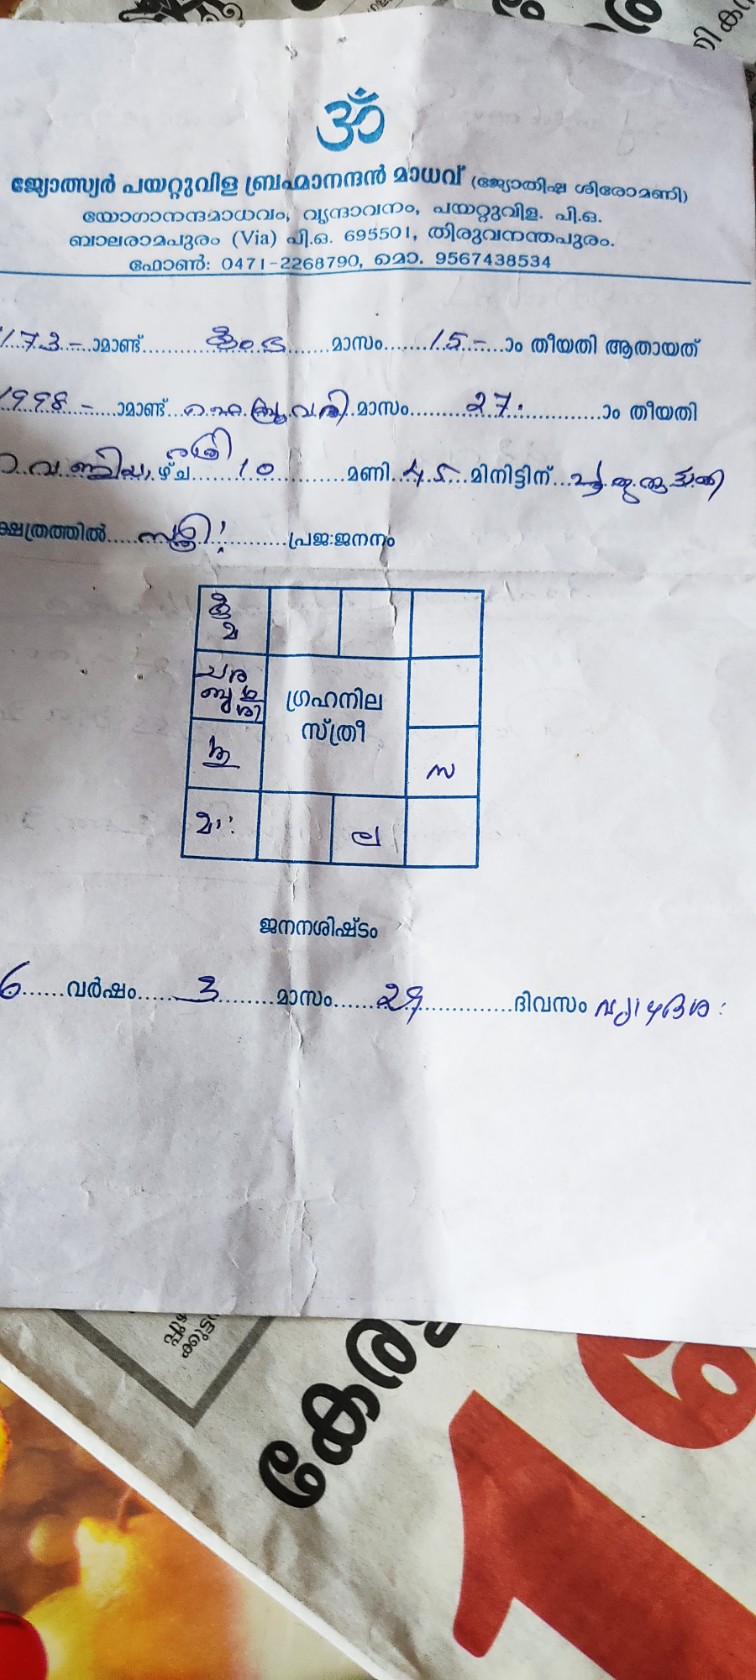 ॐ
ജ്യോത്സ്യർ പയറ്റുവിള ബ്രഹ്മാനന്ദൻ മാധവ് (ജ്യോതിഷ ശിരോമണി)
യോഗാനന്ദമാധവം, വൃന്ദാവനം, പയറ്റുവിള. പി.ഒ.
ബാലരാമപുരം (Via) പി.ഒ. 695501, തിരുവനന്തപുരം.
ഫോൺ: 0471-2268790, മൊ. 9567438534
1173-ാമാണ്ട് കുംഭ മാസം 15-ാം തീയതി ആതായത്
1998-ാമാണ്ട് ഫെബ്രുവരി മാസം 27 ാം തീയതി
വെള്ളിയാഴ്ച രാത്രി 10 മണി 45 മിനിട്ടിന് പൂരുരുട്ടാതി
ക്ഷത്രത്തിൽ സ്ത്രീ പ്രജ:ജനനം
മ
ഗ്രഹനില
സ്ത്രീ
സ
മാ
ല
ജനനശിഷ്ടം
6 വർഷം 3 മാസം 29 ദിവസം വ്യാഴദശ
കേര
1